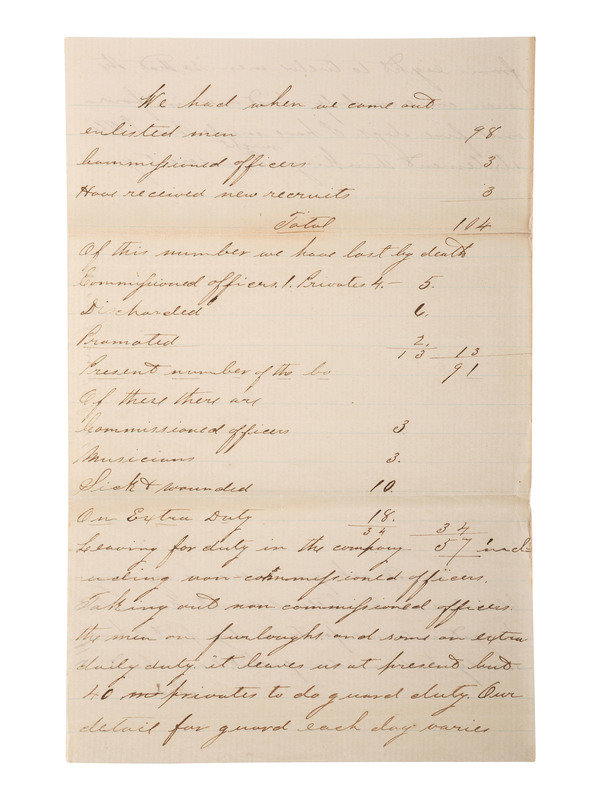 We had when we come out
enlisted men 98
Commissioned officers 3
Have received new recruits 3
Total 104
Of this number we have lost by death
Commissioned officers 1. Privates 4.– 5.
Discharded 6.
Promoted 2.
13 13
Present number of the Co 91
Of these there are
Commissioned officers 3
Musicians 3.
Sick & wounded 10.
On Extra Duty 18.
34 34
Leaving for duty in the company 57 incl-
uding non-commissioned officers.
Taking out non commissioned officers.
the men on furloughs and some on extra
daily duty it leaves us at present but
40 privates to do guard duty. Our
detail for guard each day varies